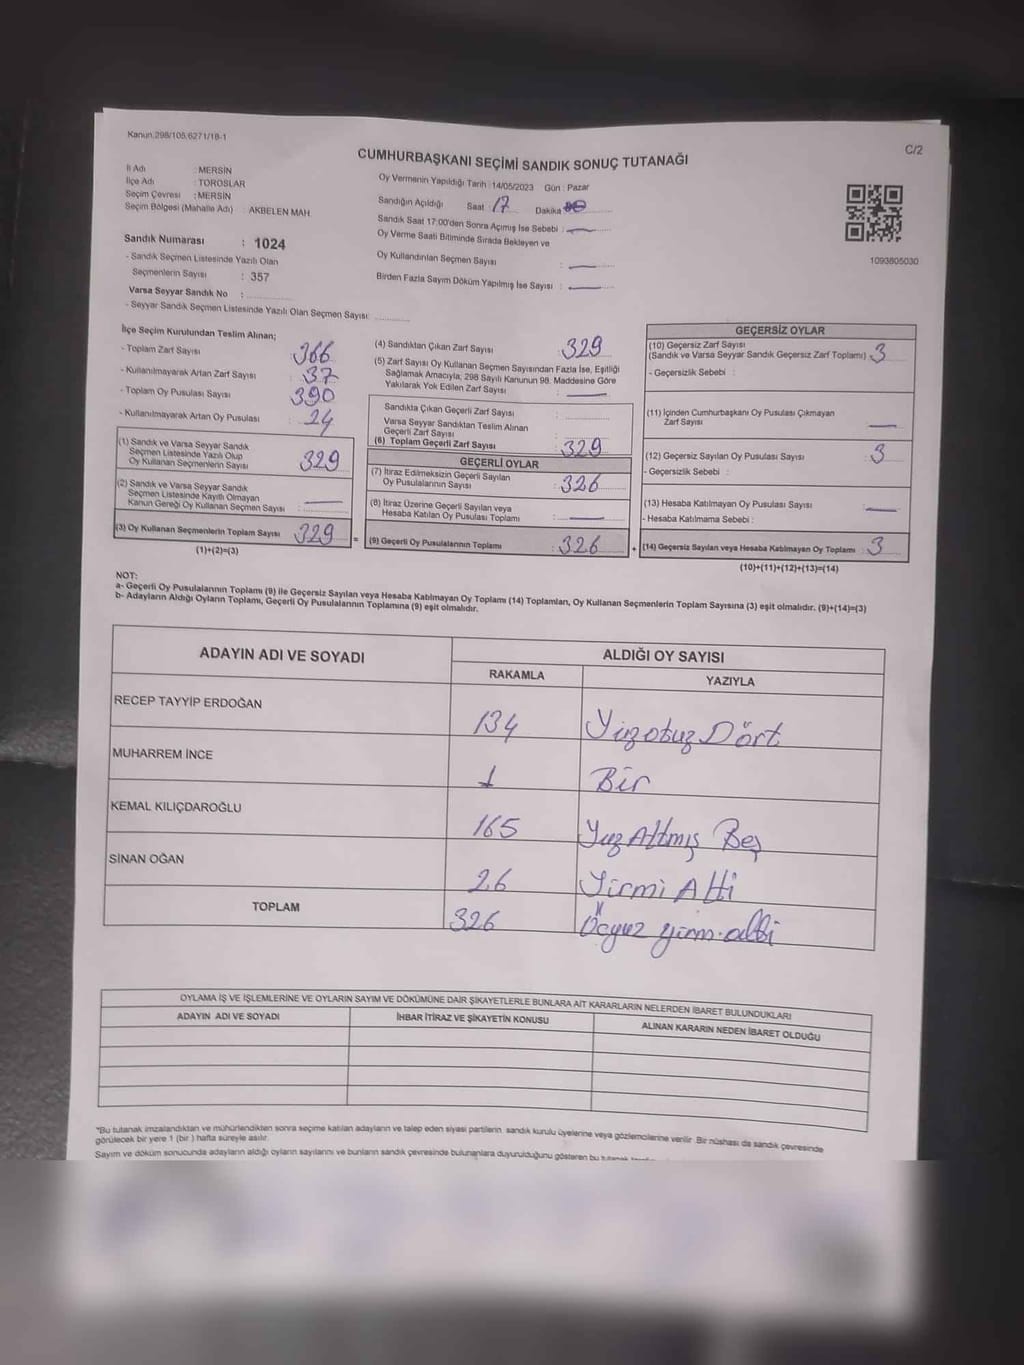 Kanun.298/105.6271/18-1
C/2
CUMHURBAŞKANI SEÇİMİ SANDIK SONUÇ TUTANAĞI
İl Adı : MERSİN
İlçe Adı : TOROSLAR
Seçim Çevresi : MERSİN
Seçim Bölgesi (Mahalle Adı) : AKBELEN MAH
Sandık Numarası : 1024
- Sandık Seçmen Listesinde Yazılı Olan
Seçmenlerin Sayısı : 357
Varsa Seyyar Sandık No :
- Seyyar Sandık Seçmen Listesinde Yazılı Olan Seçmen Sayısı:
Oy Vermenin Yapıldığı Tarih : 14/05/2023 Gün : Pazar
Sandığın Açıldığı Saat 17 Dakika
Sandık Saat 17:00'den Sonra Açımış İse Sebebi :
Oy Verme Saati Bitiminde Sırada Bekleyen ve
Oy Kullandırılan Seçmen Sayısı :
Birden Fazla Sayım Döküm Yapılmış İse Sayısı :
1093805030
İlçe Seçim Kurulundan Teslim Alınan;
- Toplam Zarf Sayısı : 366
- Kullanılmayarak Artan Zarf Sayısı : 37
- Toplam Oy Pusulası Sayısı : 390
- Kullanılmayarak Artan Oy Pusulası : 24
(1) Sandık ve Varsa Seyyar Sandık
Seçmen Listesinde Yazılı Olup
Oy Kullanan Seçmenlerin Sayısı : 329
(2) Sandık ve Varsa Seyyar Sandık
Seçmen Listesinde Kayıtlı Olmayan
Kanun Gereği Oy Kullanan Seçmen Sayısı :
(3) Oy Kullanan Seçmenlerin Toplam Sayısı : 329
(1)+(2)=(3)
(4) Sandıktan Çıkan Zarf Sayısı : 329
(5) Zarf Sayısı Oy Kullanan Seçmen Sayısından Fazla İse, Eşitliği
Sağlamak Amacıyla; 298 Sayılı Kanunun 98. Maddesine Göre
Yakılarak Yok Edilen Zarf Sayısı :
Sandıkta Çıkan Geçerli Zarf Sayısı :
Varsa Seyyar Sandıktan Teslim Alınan
Geçerli Zarf Sayısı :
(6) Toplam Geçerli Zarf Sayısı : 329
GEÇERLİ OYLAR
(7) İtiraz Edilmeksizin Geçerli Sayılan
Oy Pusulalarının Sayısı : 326
(8) İtiraz Üzerine Geçerli Sayılan veya
Hesaba Katılan Oy Pusulası Toplamı :
= (9) Geçerli Oy Pusulalarının Toplamı : 326
GEÇERSİZ OYLAR
(10) Geçersiz Zarf Sayısı
(Sandık ve Varsa Seyyar Sandık Geçersiz Zarf Toplamı) : 3
- Geçersizlik Sebebi :
(11) İçinden Cumhurbaşkanı Oy Pusulası Çıkmayan
Zarf Sayısı
(12) Geçersiz Sayılan Oy Pusulası Sayısı : 3
- Geçersizlik Sebebi :
(13) Hesaba Katılmayan Oy Pusulası Sayısı :
- Hesaba Katılmama Sebebi :
+ (14) Geçersiz Sayılan veya Hesaba Katılmayan Oy Toplamı : 3
(10)+(11)+(12)+(13)=(14)
NOT:
a- Geçerli Oy Pusulalarının Toplamı (9) ile Geçersiz Sayılan veya Hesaba Katılmayan Oy Toplamı (14) Toplamları, Oy Kullanan Seçmenlerin Toplam Sayısına (3) eşit olmalıdır. (9)+(14)=(3)
b- Adayların Aldığı Oyların Toplamı, Geçerli Oy Pusulalarının Toplamına (9) eşit olmalıdır.
ADAYIN ADI VE SOYADI
ALDIĞI OY SAYISI
RAKAMLA YAZIYLA
RECEP TAYYİP ERDOĞAN 134 Yüzotuz Dört
MUHARREM İNCE 1 Bir
KEMAL KILIÇDAROĞLU 165 Yuz Altmış Beş
SİNAN OĞAN 26 Yirmi Altı
TOPLAM 326 Üçyuz yirmi altı
OYLAMA İŞ VE İŞLEMLERİNE VE OYLARIN SAYIM VE DÖKÜMÜNE DAİR ŞİKAYETLERLE BUNLARA AİT KARARLARIN NELERDEN İBARET BULUNDUKLARI
ADAYIN ADI VE SOYADI İHBAR İTİRAZ VE ŞİKAYETİN KONUSU ALINAN KARARIN NEDEN İBARET OLDUĞU
"Bu tutanak imzalandıktan ve mühürlendikten sonra seçime katılan adayların ve talep eden siyasi partilerin sandık kurulu üyelerine veya gözlemcilerine verilir. Bir nüshası da sandık çevresinde
görülecek bir yere 1 (bir ) hafta süreyle asılır.
Sayım ve döküm sonucunda adayların aldığı oyların sayılarını ve bunların sandık çevresinde bulunanlara duyurulduğunu gösteren bu